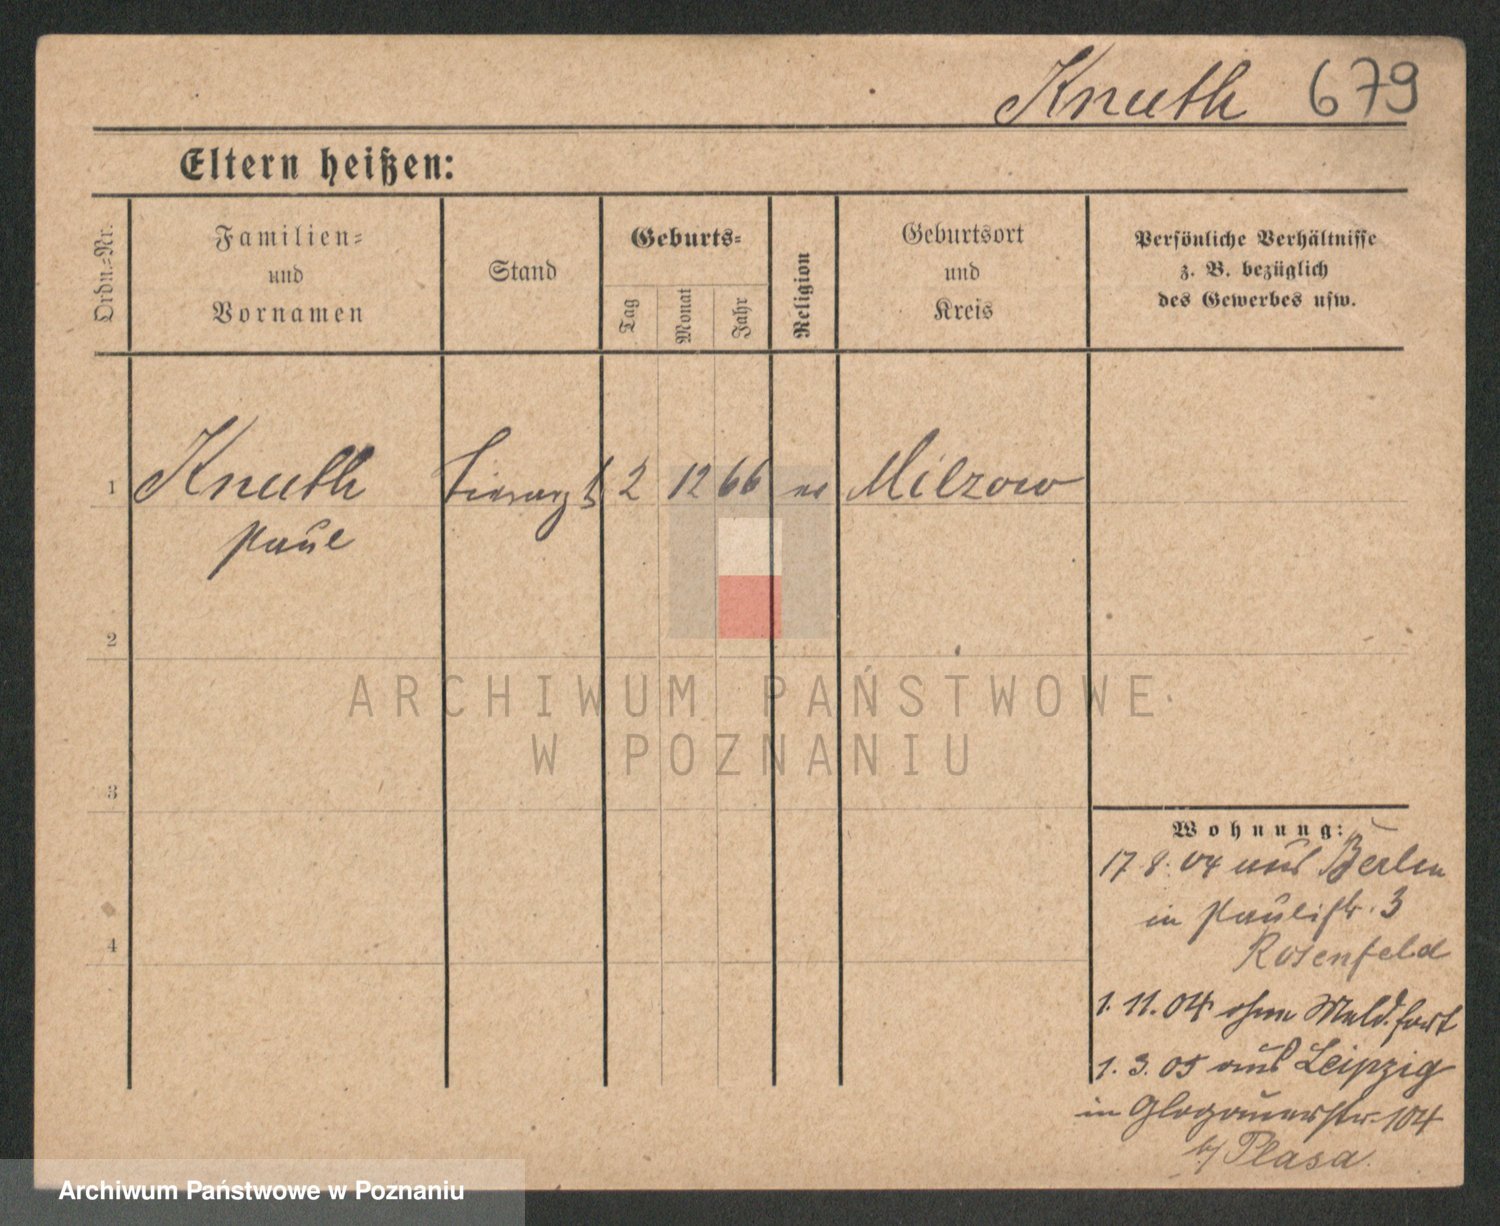 Knuth 679
Eltern heißen:
Ordn.-Nr.
Familien-
und
Vornamen
Stand
Geburts-
Tag
Monat
Jahr
Religion
Geburtsort
und
Kreis
Persönliche Verhältnisse
z. B. bezüglich
des Gewerbes usw.
1 Knuth Tierarzt 2 12 66 ev Milzow
Paul
2
3
4
Wohnung:
17 8. 04 aus Berlin
in Paulistr. 3
Rosenfeld
1. 11. 04 ohne Meld. fort
1. 3. 05 aus Leipzig
in Glogauerstr. 104
b/ Plasa.
ARCHIWUM PAŃSTWOWE
W POZNANIU
Archiwum Państwowe w Poznaniu